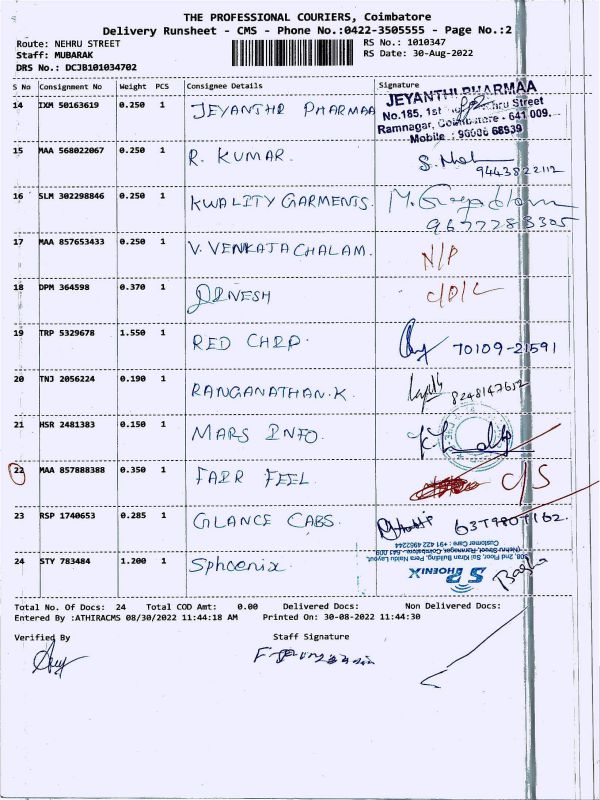 THE PROFESSIONAL COURIERS, Coimbatore
Delivery Runsheet - CMS - Phone No.:0422-3505555 - Page No.:2
Route: NEHRU STREET
Staff: MUBARAK
DRS No.: DCJB101034702
RS No.: 1010347
RS Date: 30-Aug-2022
S No Consignment No Weight PCS Consignee Details Signature
14 IXM 50163619 0.250 1 JEYANTHI PHARMAA
JEYANTHI PHARMAA
No.185, 1st Nehru Street
Ramnagar, Coimbatore - 641 009.
Mobile : 90036 68939
15 MAA 568022067 0.250 1 R. KUMAR.
9443822112
16 SLM 302298846 0.250 1 KWALITY GARMENTS.
9677283305
17 MAA 857653433 0.250 1 V. VENKATACHALAM. N/P
18 DPM 364598 0.370 1 DINESH C/D/L
19 TRP 5329678 1.550 1 RED CHIP. 70109-21591
20 TNJ 2056224 0.190 1 RANGANATHAN.K. 8248147652
21 HSR 2481383 0.150 1 MARS INFO.
22 MAA 857888388 0.350 1 FAIR FEEL C/S
23 RSP 1740653 0.285 1 GLANCE CABS.
24 STY 783484 1.200 1 Sphoenix
Customer Care : +91 422 4952244
508, 2nd Floor, Sai Kiran Building
S PHOENIX
Total No. Of Docs: 24 Total COD Amt: 0.00 Delivered Docs: Non Delivered Docs:
Entered By :ATHIRACMS 08/30/2022 11:44:18 AM Printed On: 30-08-2022 11:44:30
Verified By Staff Signature